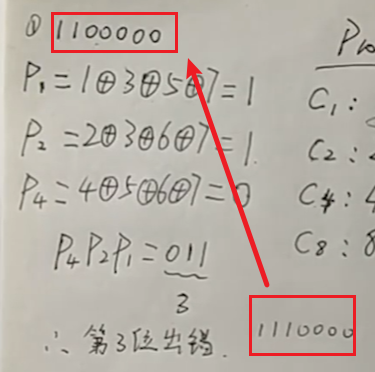 ① 1100000
P₁=1⊕3⊕5⊕7=1
P₂=2⊕3⊕6⊕7=1.
P₄=4⊕5⊕6⊕7=0
P₄P₂P₁=011
3
∴ 第3位出错.
1110000
C₁:
C₂:
C₄: 4
C₈: 8